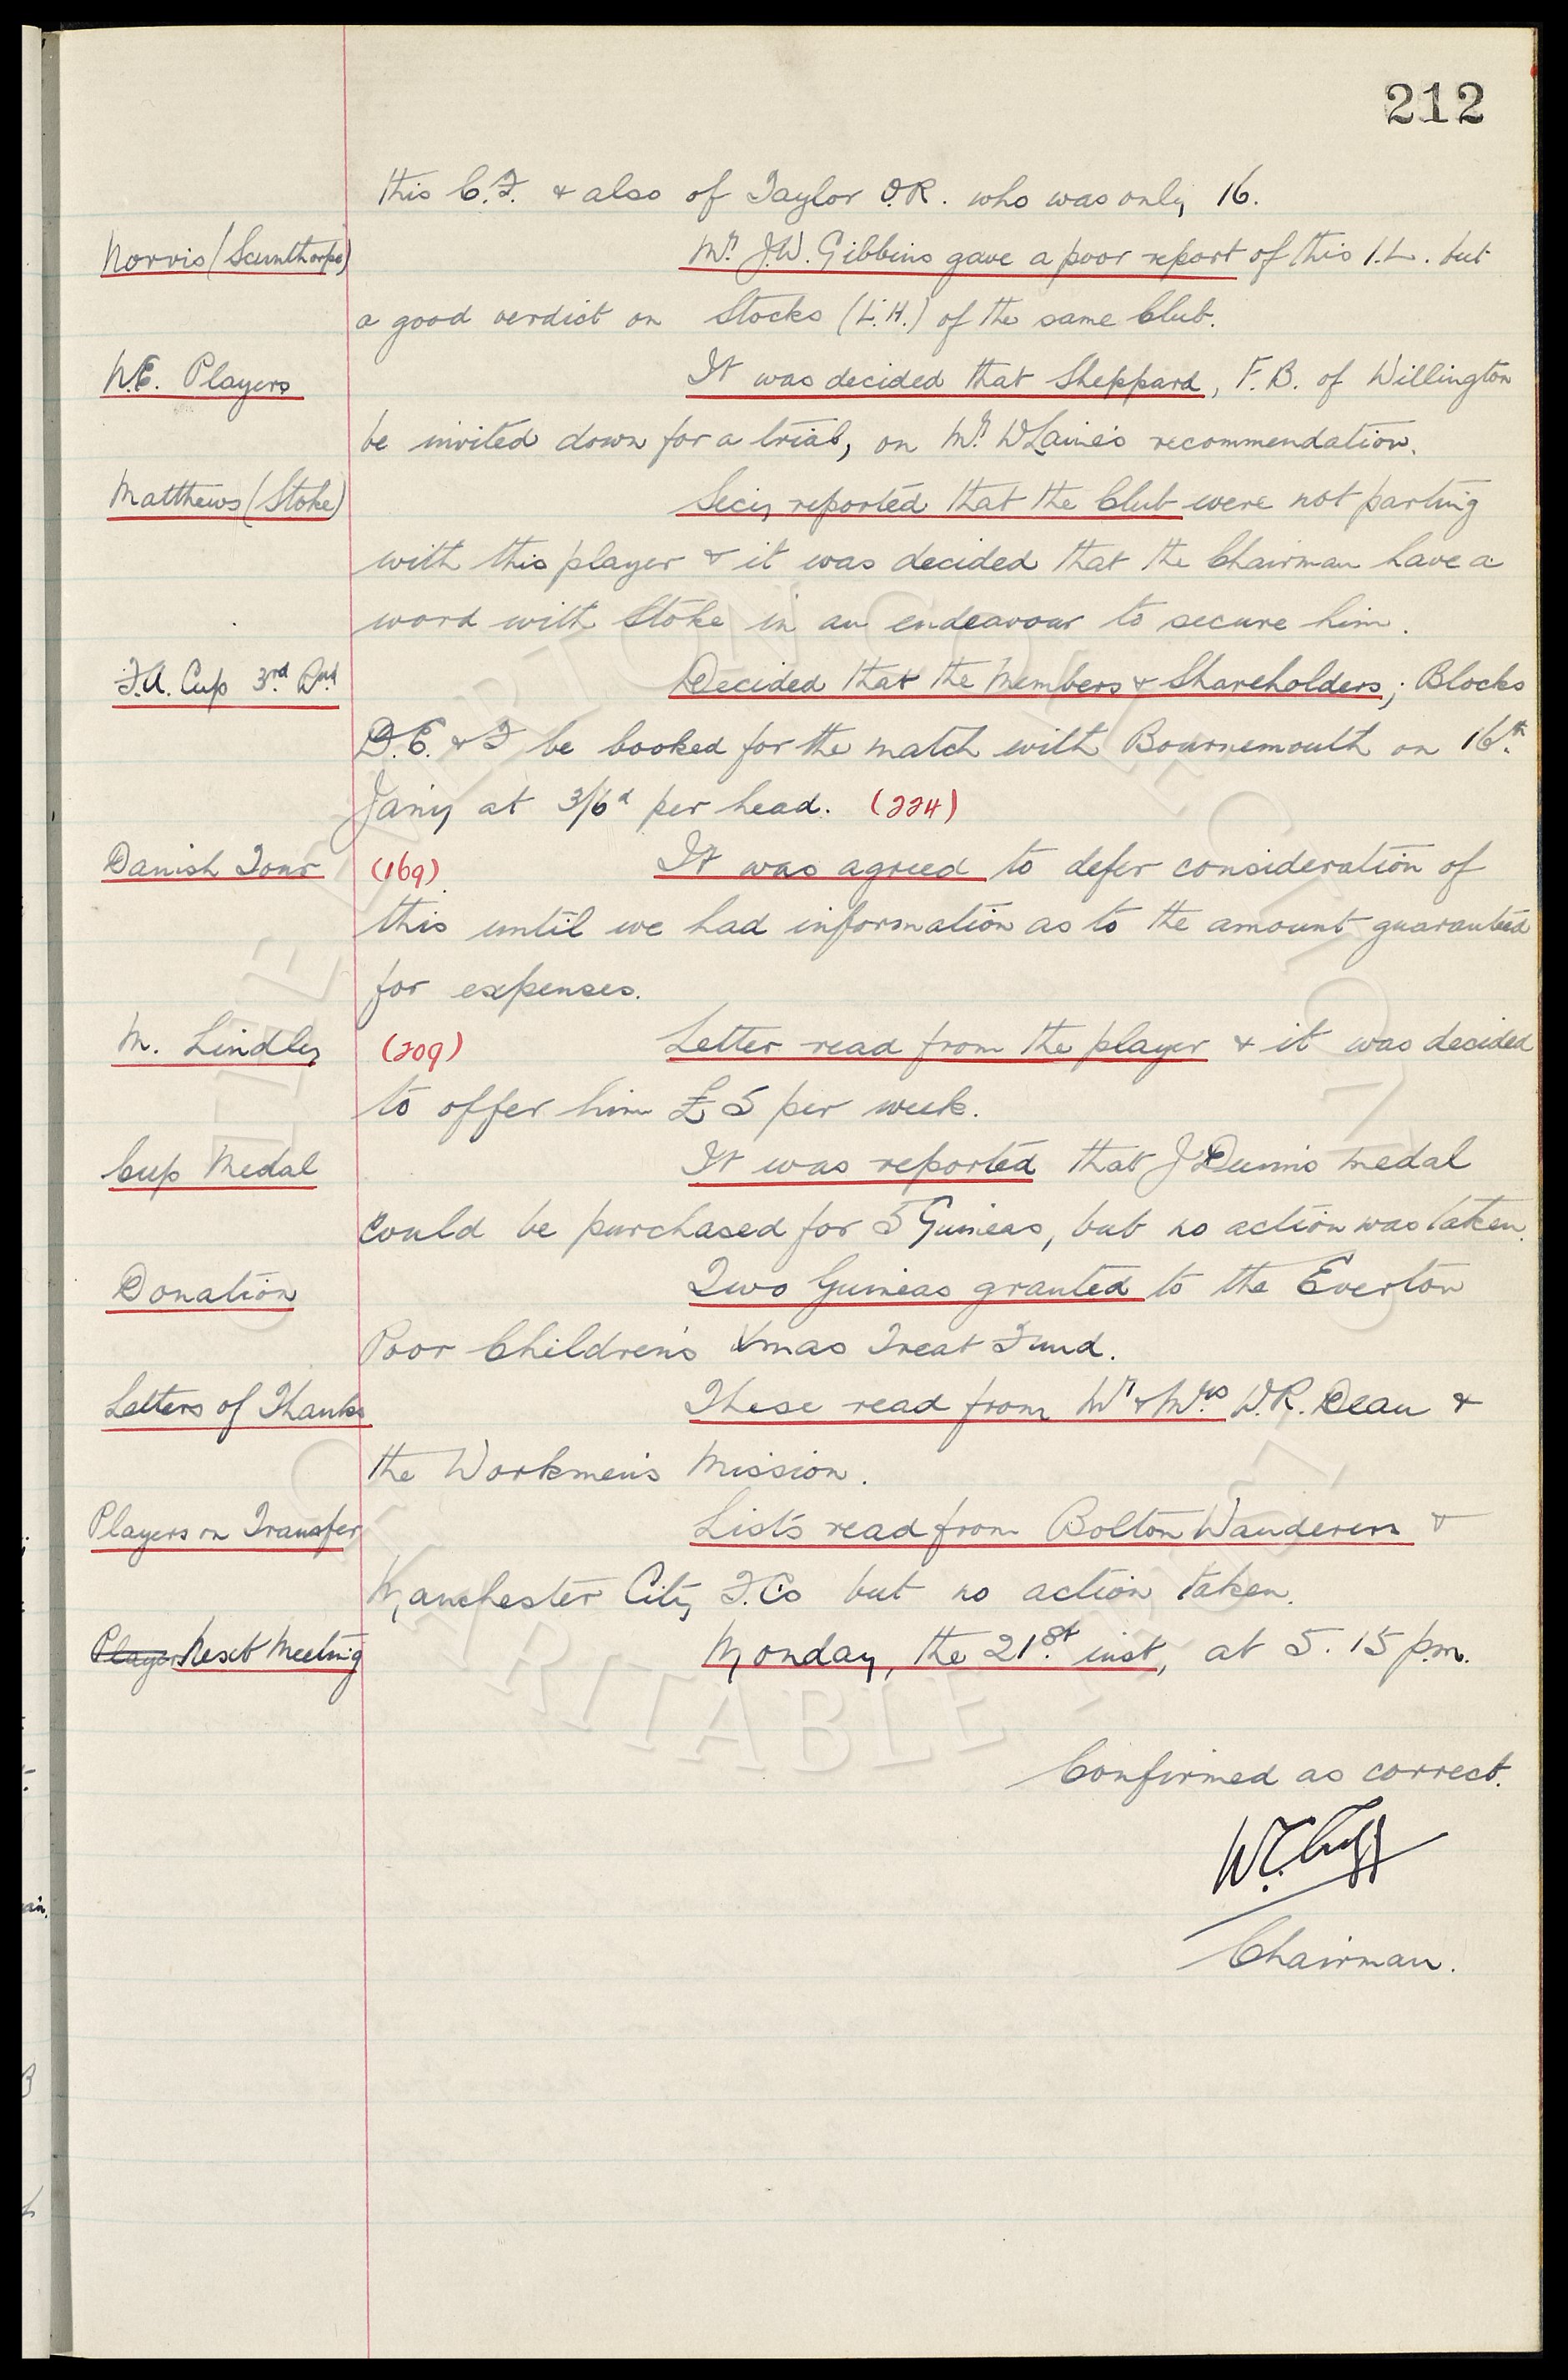 212
this C.F. & also of Taylor O.R. who was only 16.
Norris (Scunthorpe) Mr. J.W. Gibbins gave a poor report of this I.L. but
a good verdict on Stocks (L.H.) of the same Club.
N.E. Players It was decided that Sheppard, F.B. of Willington
be invited down for a trial, on Mr. W Laine's recommendation.
Matthews (Stoke) Secy reported that the Club were not parting
with this player & it was decided that the Chairman have a
word with Stoke in an endeavour to secure him.
F.A. Cup 3rd Rnd Decided that the Members & Shareholders; Blocks
D.E. & F be booked for the match with Bournemouth on 16th.
Jan'y at 3/6d per head. (224)
Danish Tour (169) It was agreed to defer consideration of
this until we had information as to the amount guaranteed
for expenses.
M. Lindley (209) Letter read from the player & it was decided
to offer him £5 per week.
Cup Medal It was reported that J Dunn's medal
could be purchased for 5 Guineas, but no action was taken.
Donation Two Guineas granted to the Everton
Poor Children's Xmas Treat Fund.
Letters of Thanks These read from Mr & Mrs W.R. Dean &
the Workmen's Mission.
Players on Transfer Lists read from Bolton Wanderers &
Manchester City F.Cs but no action taken.
Player Next Meeting Monday, the 21st. inst, at 5.15 p.m.
Confirmed as correct.
W.C. Cuff
Chairman.